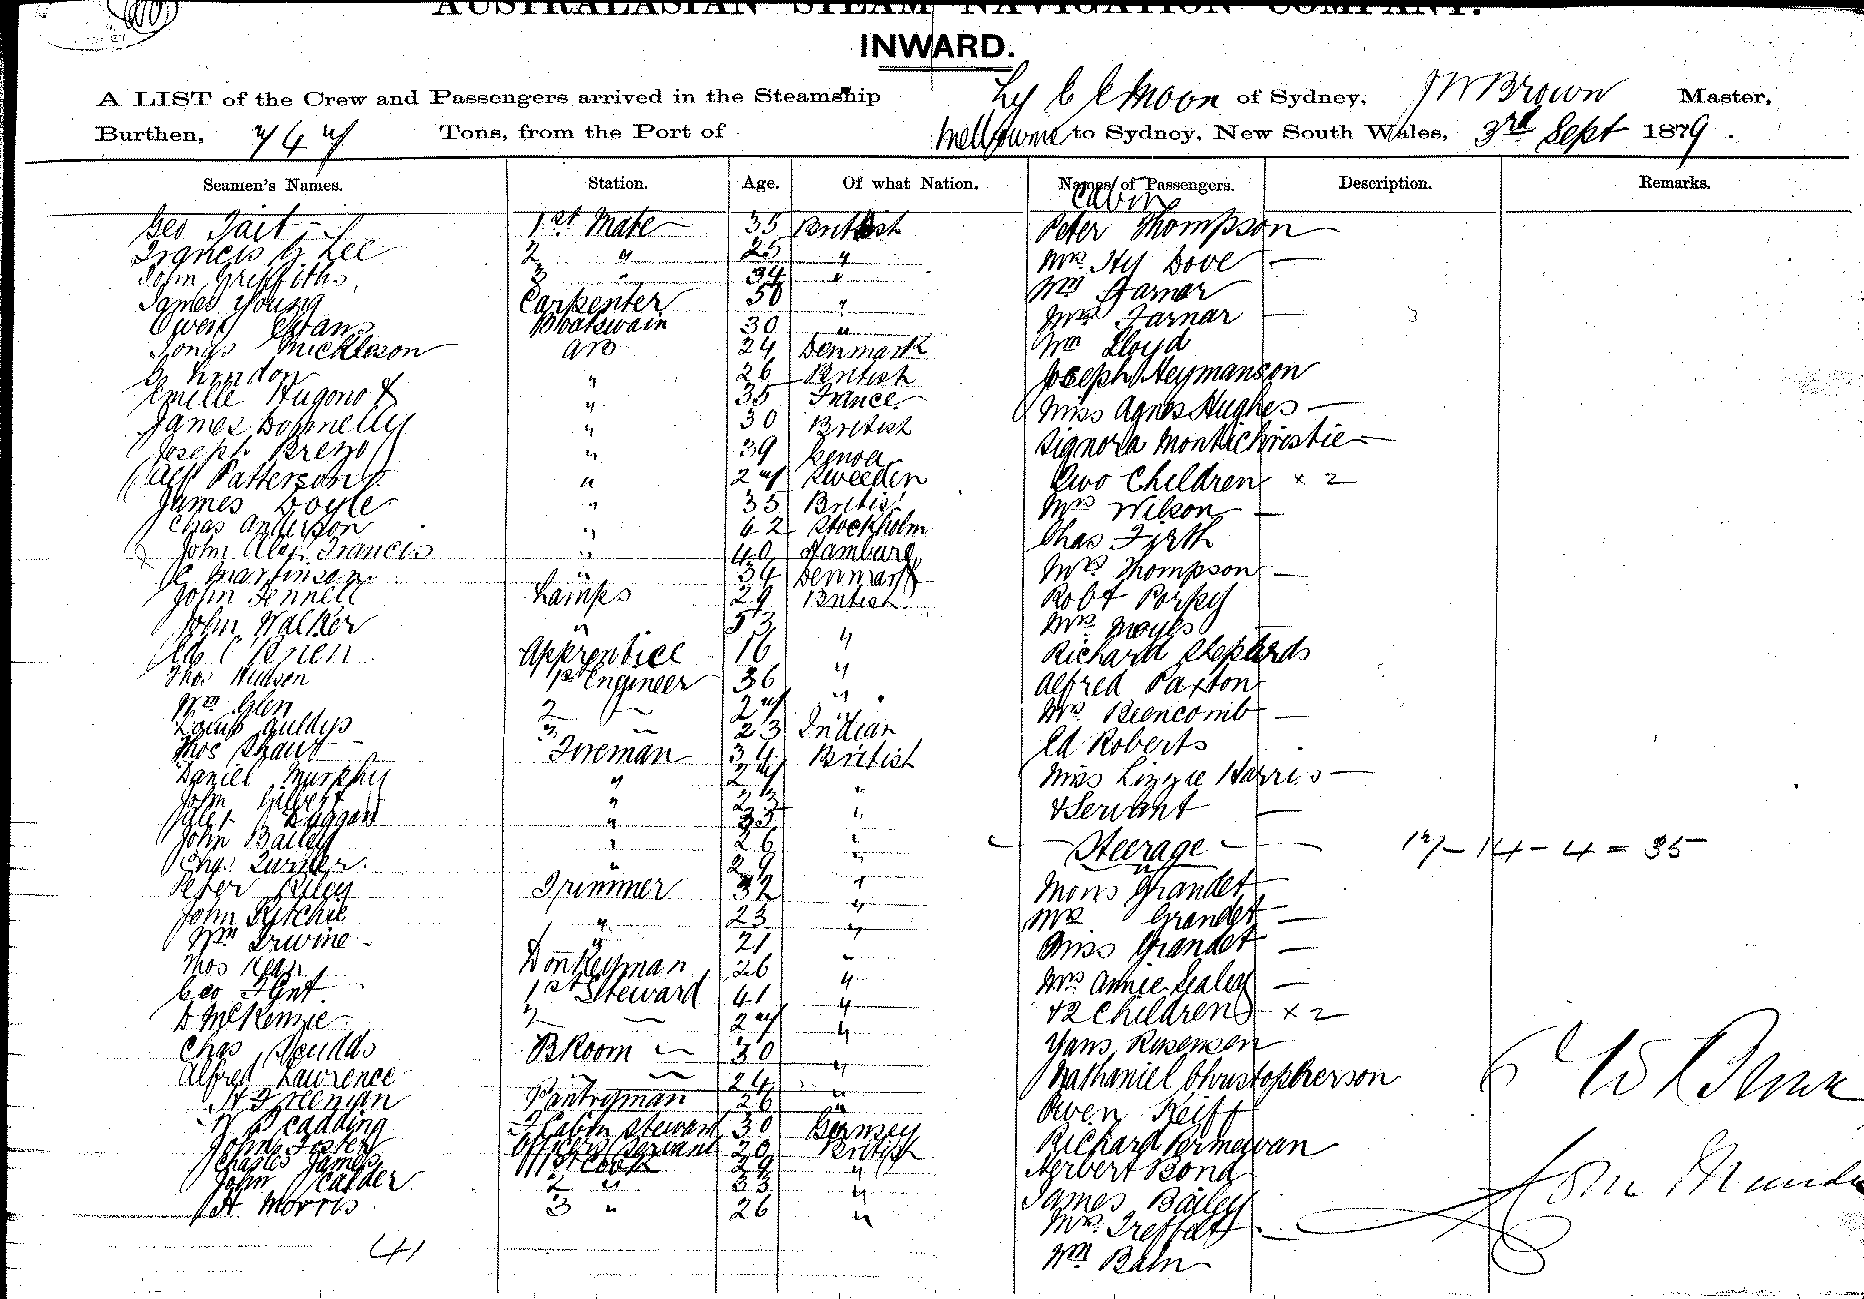 AUSTRALASIAN STEAM NAVIGATION COMPANY.
INWARD.
A LIST of the Crew and Passengers arrived in the Steamship Ly E E Moon of Sydney, J W Brown Master,
Burthen, 747 Tons, from the Port of Melbourne to Sydney, New South Wales, 3rd Sept 1879.
Seamen's Names. Station. Age. Of what Nation. Names of Passengers. Description. Remarks.
Cabin
Geo Tait 1st Mate 35 British Peter Thompson —
Francis G Lee 2 " 25 " Mrs Hy Dove —
John Griffiths 3 " 34 " Wm Farnar
James Young Carpenter 50 " Mrs Farnar —
Owen Evans Boatswain 30 " Wm Lloyd
Jonas Mickleson AB 24 Denmark Joseph Heymanson
G 26 British Miss Agnes Hughes —
Emille " 35 France Signora Montechristie —
James Donnelly " 30 British Two Children × 2
Joseph " 39 Genoa Mrs Wilson —
Alf Patterson " 27 Sweeden Chas Firth
James Doyle " 35 British Mrs Thompson —
Chas Anderson " 42 Stockholm Robt
John Alex Francis " 40 Hamburg Mrs Moyes —
C Martinson " 34 Denmark Richard Shepherds
John Fennell Lamps 29 British Alfred Paxton
John Walker " 53 " Mrs —
O'Brien Apprentice 16 " Ed Roberts
Thos Hudson 1st Engineer 36 " Miss Lizzie Harris —
Wm Glen 2 " 27 " & Servant —
Louis 3 " 23 Indian
Thos Fireman 34 British
Daniel Murphy " 27 "
John Gilbert " 23 "
Duggan " 35 "
John Bailey " 26 " — Steerage — 17 – 14 – 4 = 35
Chas Turner " 29 " Mons Grandet
Peter Riley Trimmer 32 " Mrs Grandet —
John Ritchie " 23 " Miss Grandet —
Wm Irwine " 21 " Mrs Annie Sealey —
Thos Kean Donkeyman 26 " & 2 Children × 2
Geo Flint 1st Steward 41 " Hans Rusensen
D McKenzie 2 " 27 " Nathaniel Christopherson
Chas BRoom " 30 " Owen
Alfred Lawrence " " 24 " Richard
H Freeman Pantryman 26 " Herbert Bond
30 James Bailey
John Foster Officers Servant 20 British Mrs —
Charles James 1st Cook 29 " Wm Bain
John Calder 2 " 33 "
H Morris 3 " 26 "
41